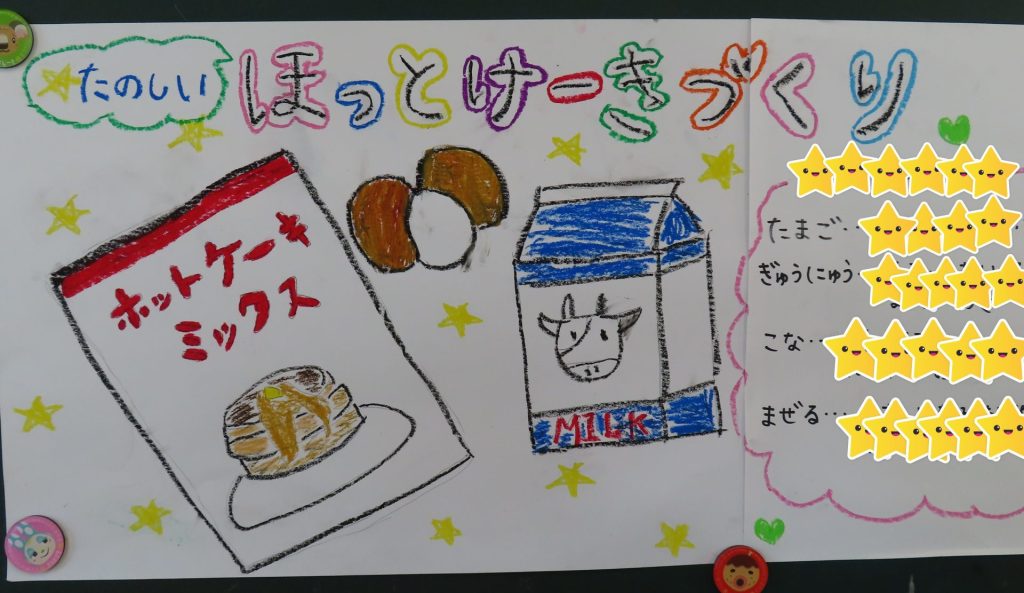 たのしい
ほっとけーきづくり
ホットケーキ
ミックス
MILK
たまご‥
ぎゅうにゅう
こな‥
まぜる…